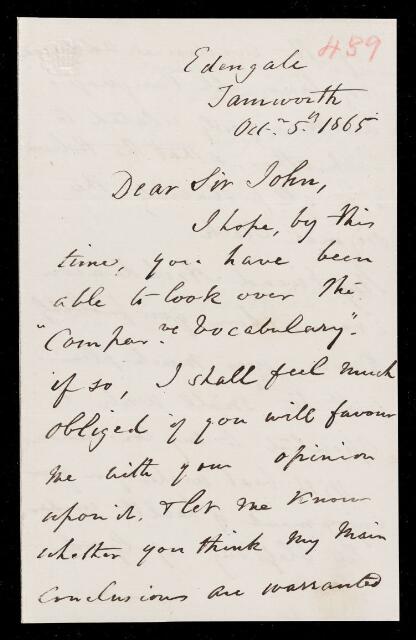 489
Edengale
Tamworth
Octr. 5th 1865
Dear Sir John,
I hope, by this
time, you have been
able to look over the
"Compar.ve Vocabulary".
if so, I shall feel much
obliged if you will favour
me with your opinion
upon it. & let me know
whether you think my main
conclusions are warranted